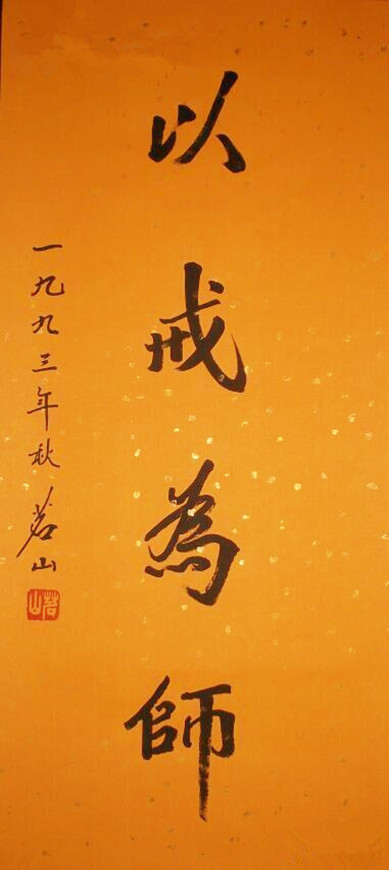 以戒為師
一九九三年秋茗山
茗山